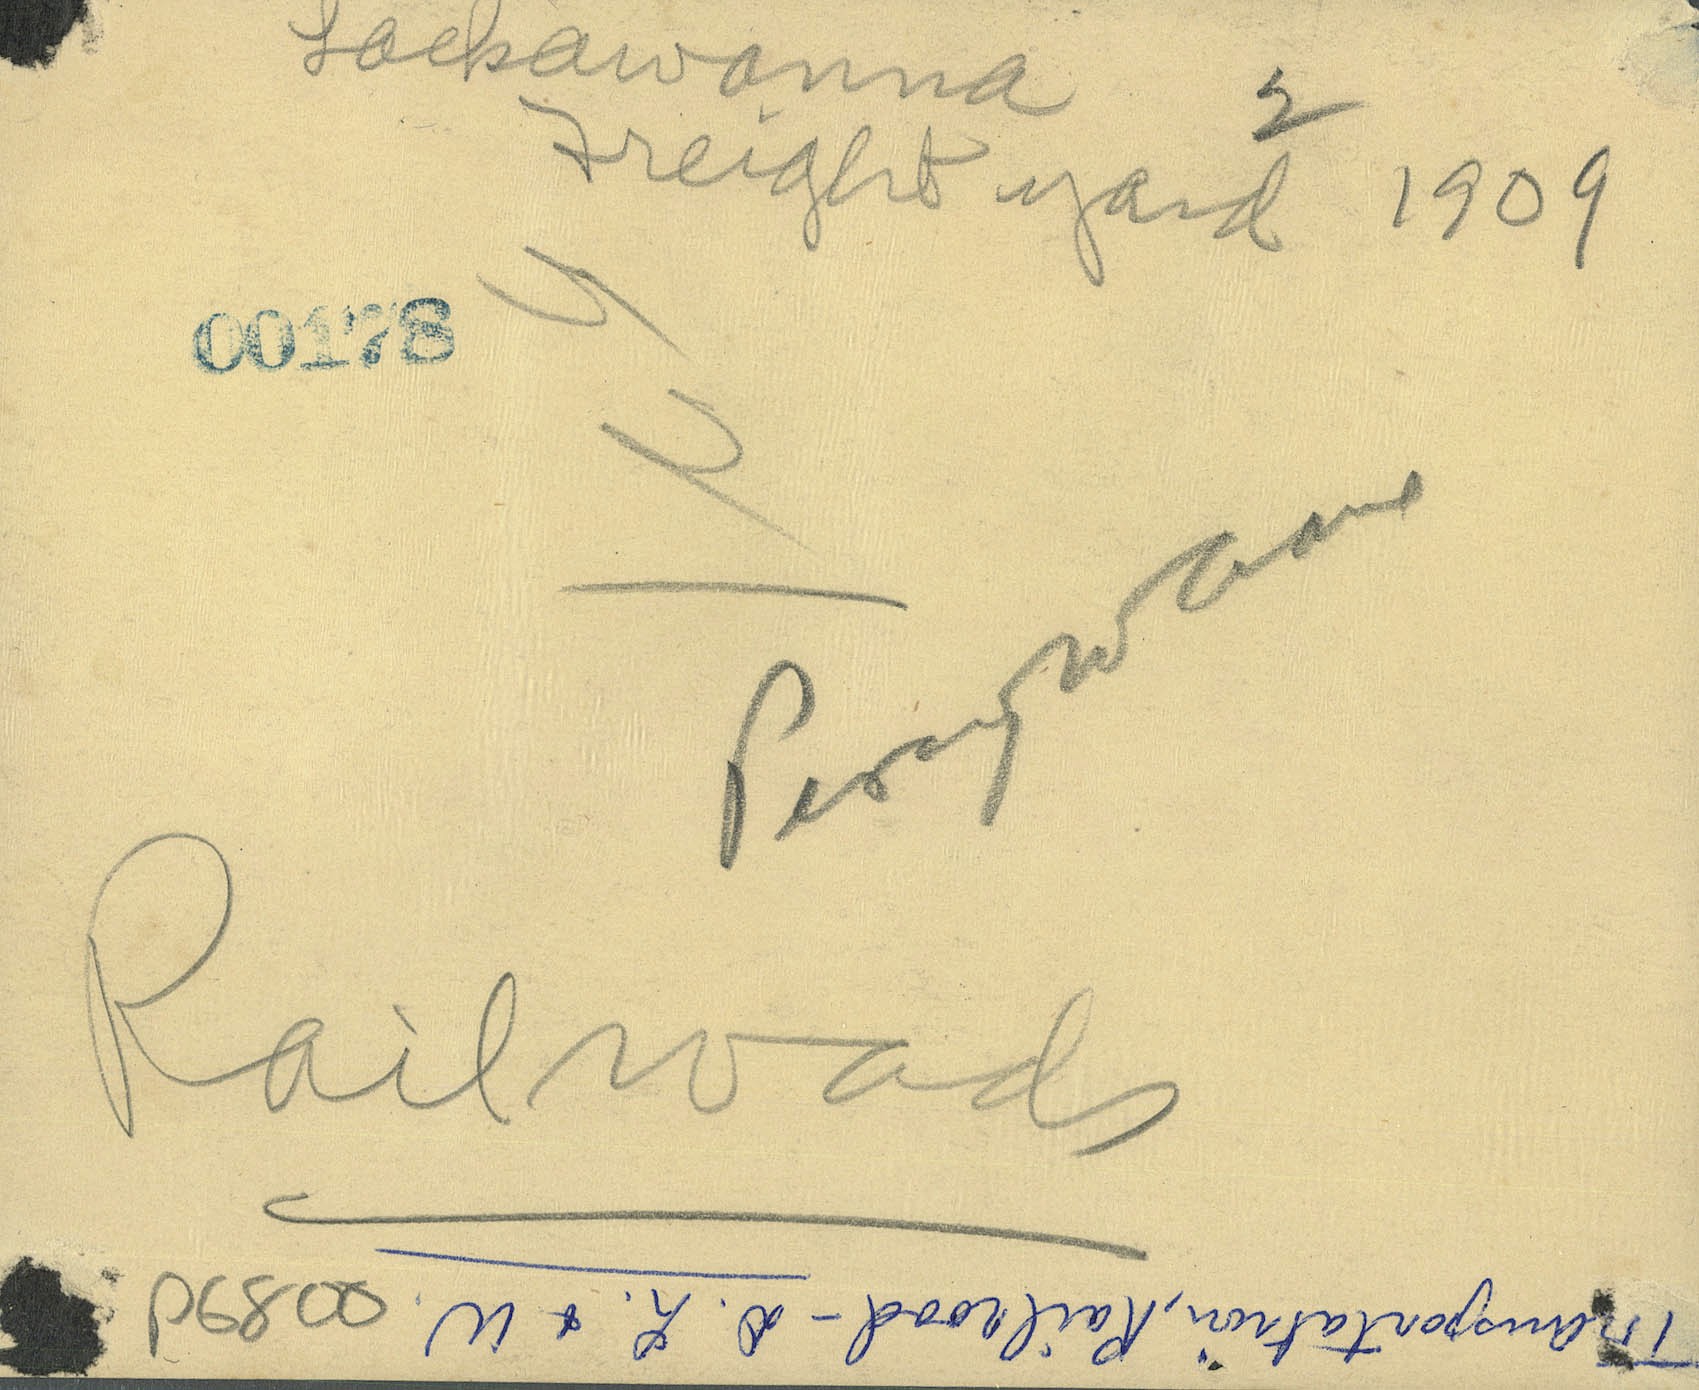 Lackawanna
2
Freight yard 1909
00178
Railroads
Transportation, Railroad - D. L. & W.